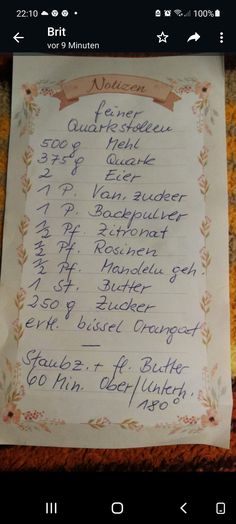 22:10 100%
Brit
vor 9 Minuten
Notizen
feiner
Quarkstollen
500 g Mehl
375 g Quark
2 Eier
1 P. Van. zucker
1 P. Backpulver
1/2 Pf. Zitronat
1/2 Pf. Rosinen
1/2 Pf. Mandeln geh.
1 St. Butter
250 g Zucker
evtl. bissel Orangeat
—
Staubz. + fl. Butter
60 Min. Ober/Unterh.
180°